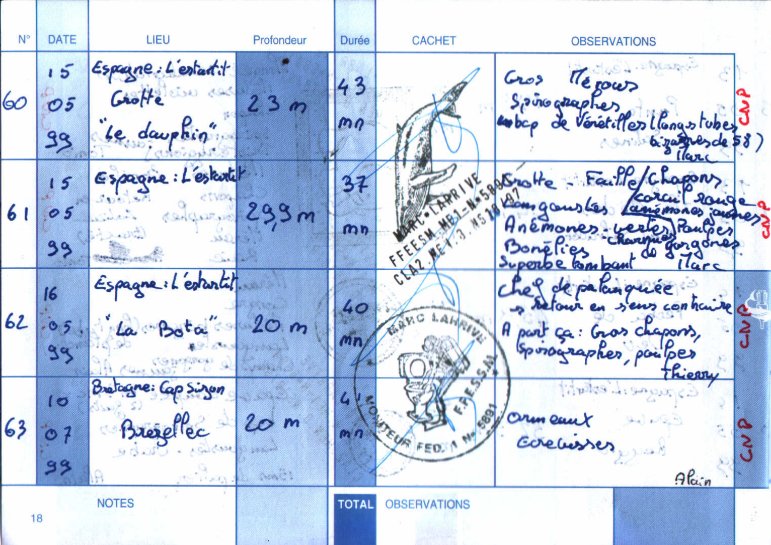 N° DATE LIEU Profondeur Durée CACHET OBSERVATIONS
60
15
05
99
Espagne : L'estartit
Grotte
"Le dauphin"
23 m
43
mn
Gros Mérous
Spirographes
bcp de Vérétilles (longs tubes
bizarres de 58)
Marc
CNP
61
15
05
99
Espagne : L'estartit
29,9 m
37
mn
Grotte - Faille / Chapons
corail rouge
Langoustes
anémones jaunes
Anémones vertes, Poulpes
champs de gorgones
Bonélies
Superbe tombant Marc
CNP
62
16
05
99
Espagne : L'estartit
"La Bota"
20 m
40
mn
Chef de palanquée
→ Retour en sens contraire
A part ça : Gros chapons,
Spirographes, poulpes
Thierry
CNP
63
10
07
99
Bretagne : Cap Sizun
Brezellec
20 m
mn
Ormeaux
Ecrevisses
Alain
CNP
MARC LARRIVE
MARC LARRIVE
F.F.E.S.S.M.
MONITEUR FED. 1 N° 5891
NOTES TOTAL OBSERVATIONS
18